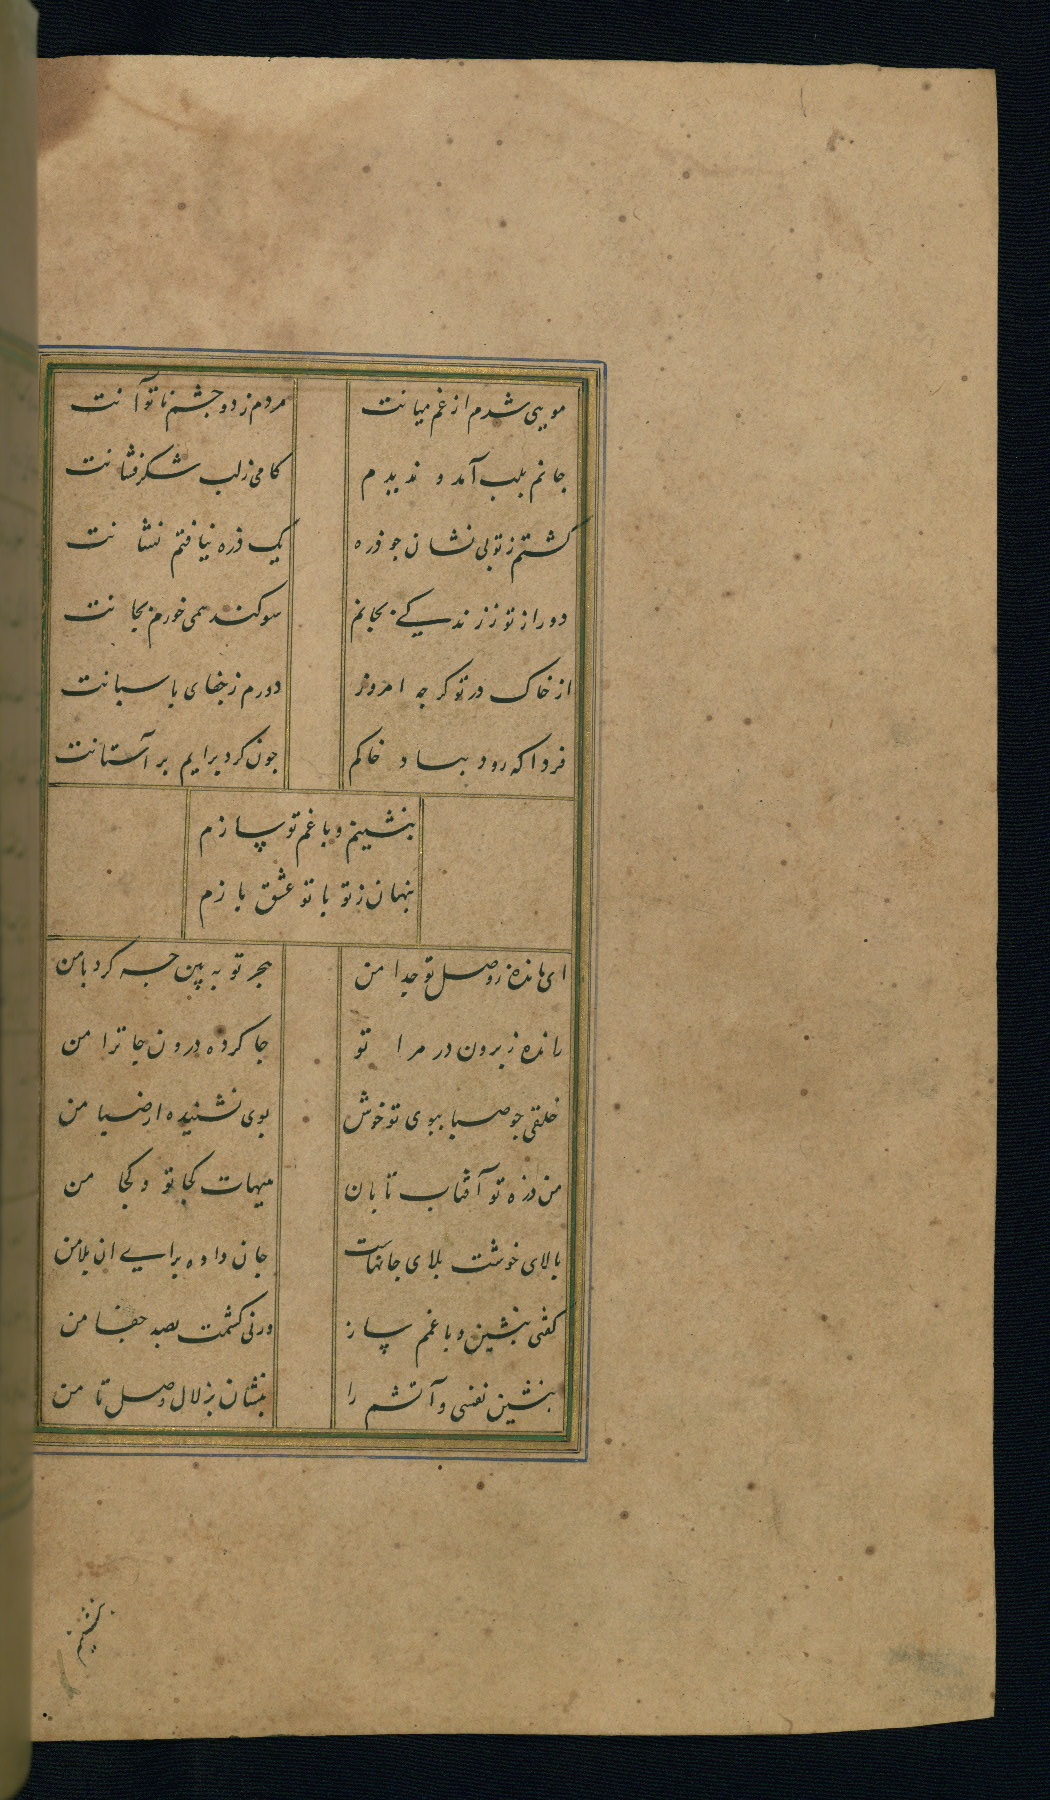 مویی شدم از غم میانت
مردم ز دو چشم ناتوانت
جانم بلب آمد و ندیدم
کامی ز لب شکرفشانت
گشتم ز تو بی نشان چو ذره
یک ذره نیافتم نشانت
دور از تو ز زندگی بجانم
سوکند همی خورم بجانت
از خاک در تو کرچه امروز
دورم ز جفای پاسبانت
فردا که رود بباد خاکم
چون کرد برایم بر آستانت
بنشینم و با غم تو سازم
پنهان ز تو با تو عشق بازم
ای مانده ز وصل تو جدا من
هجر تو ببین چه کرد با من
رانده ز برون در مرا تو
جا کرده درون جا ترا من
خلقی چو صبا ببوی تو خوش
بوی نشنیده از صبا من
من ذره تو آفتاب تابان
هیهات کجا تو و کجا من
بالای خوشت بلای جانهاست
جان داده برای ان بلا من
کفتی بنشین و با غمم ساز
ورنی کشمت بصد جفا من
بنشین نفسی و آتشم را
بنشان بزلال وصل تا من
بنشینم